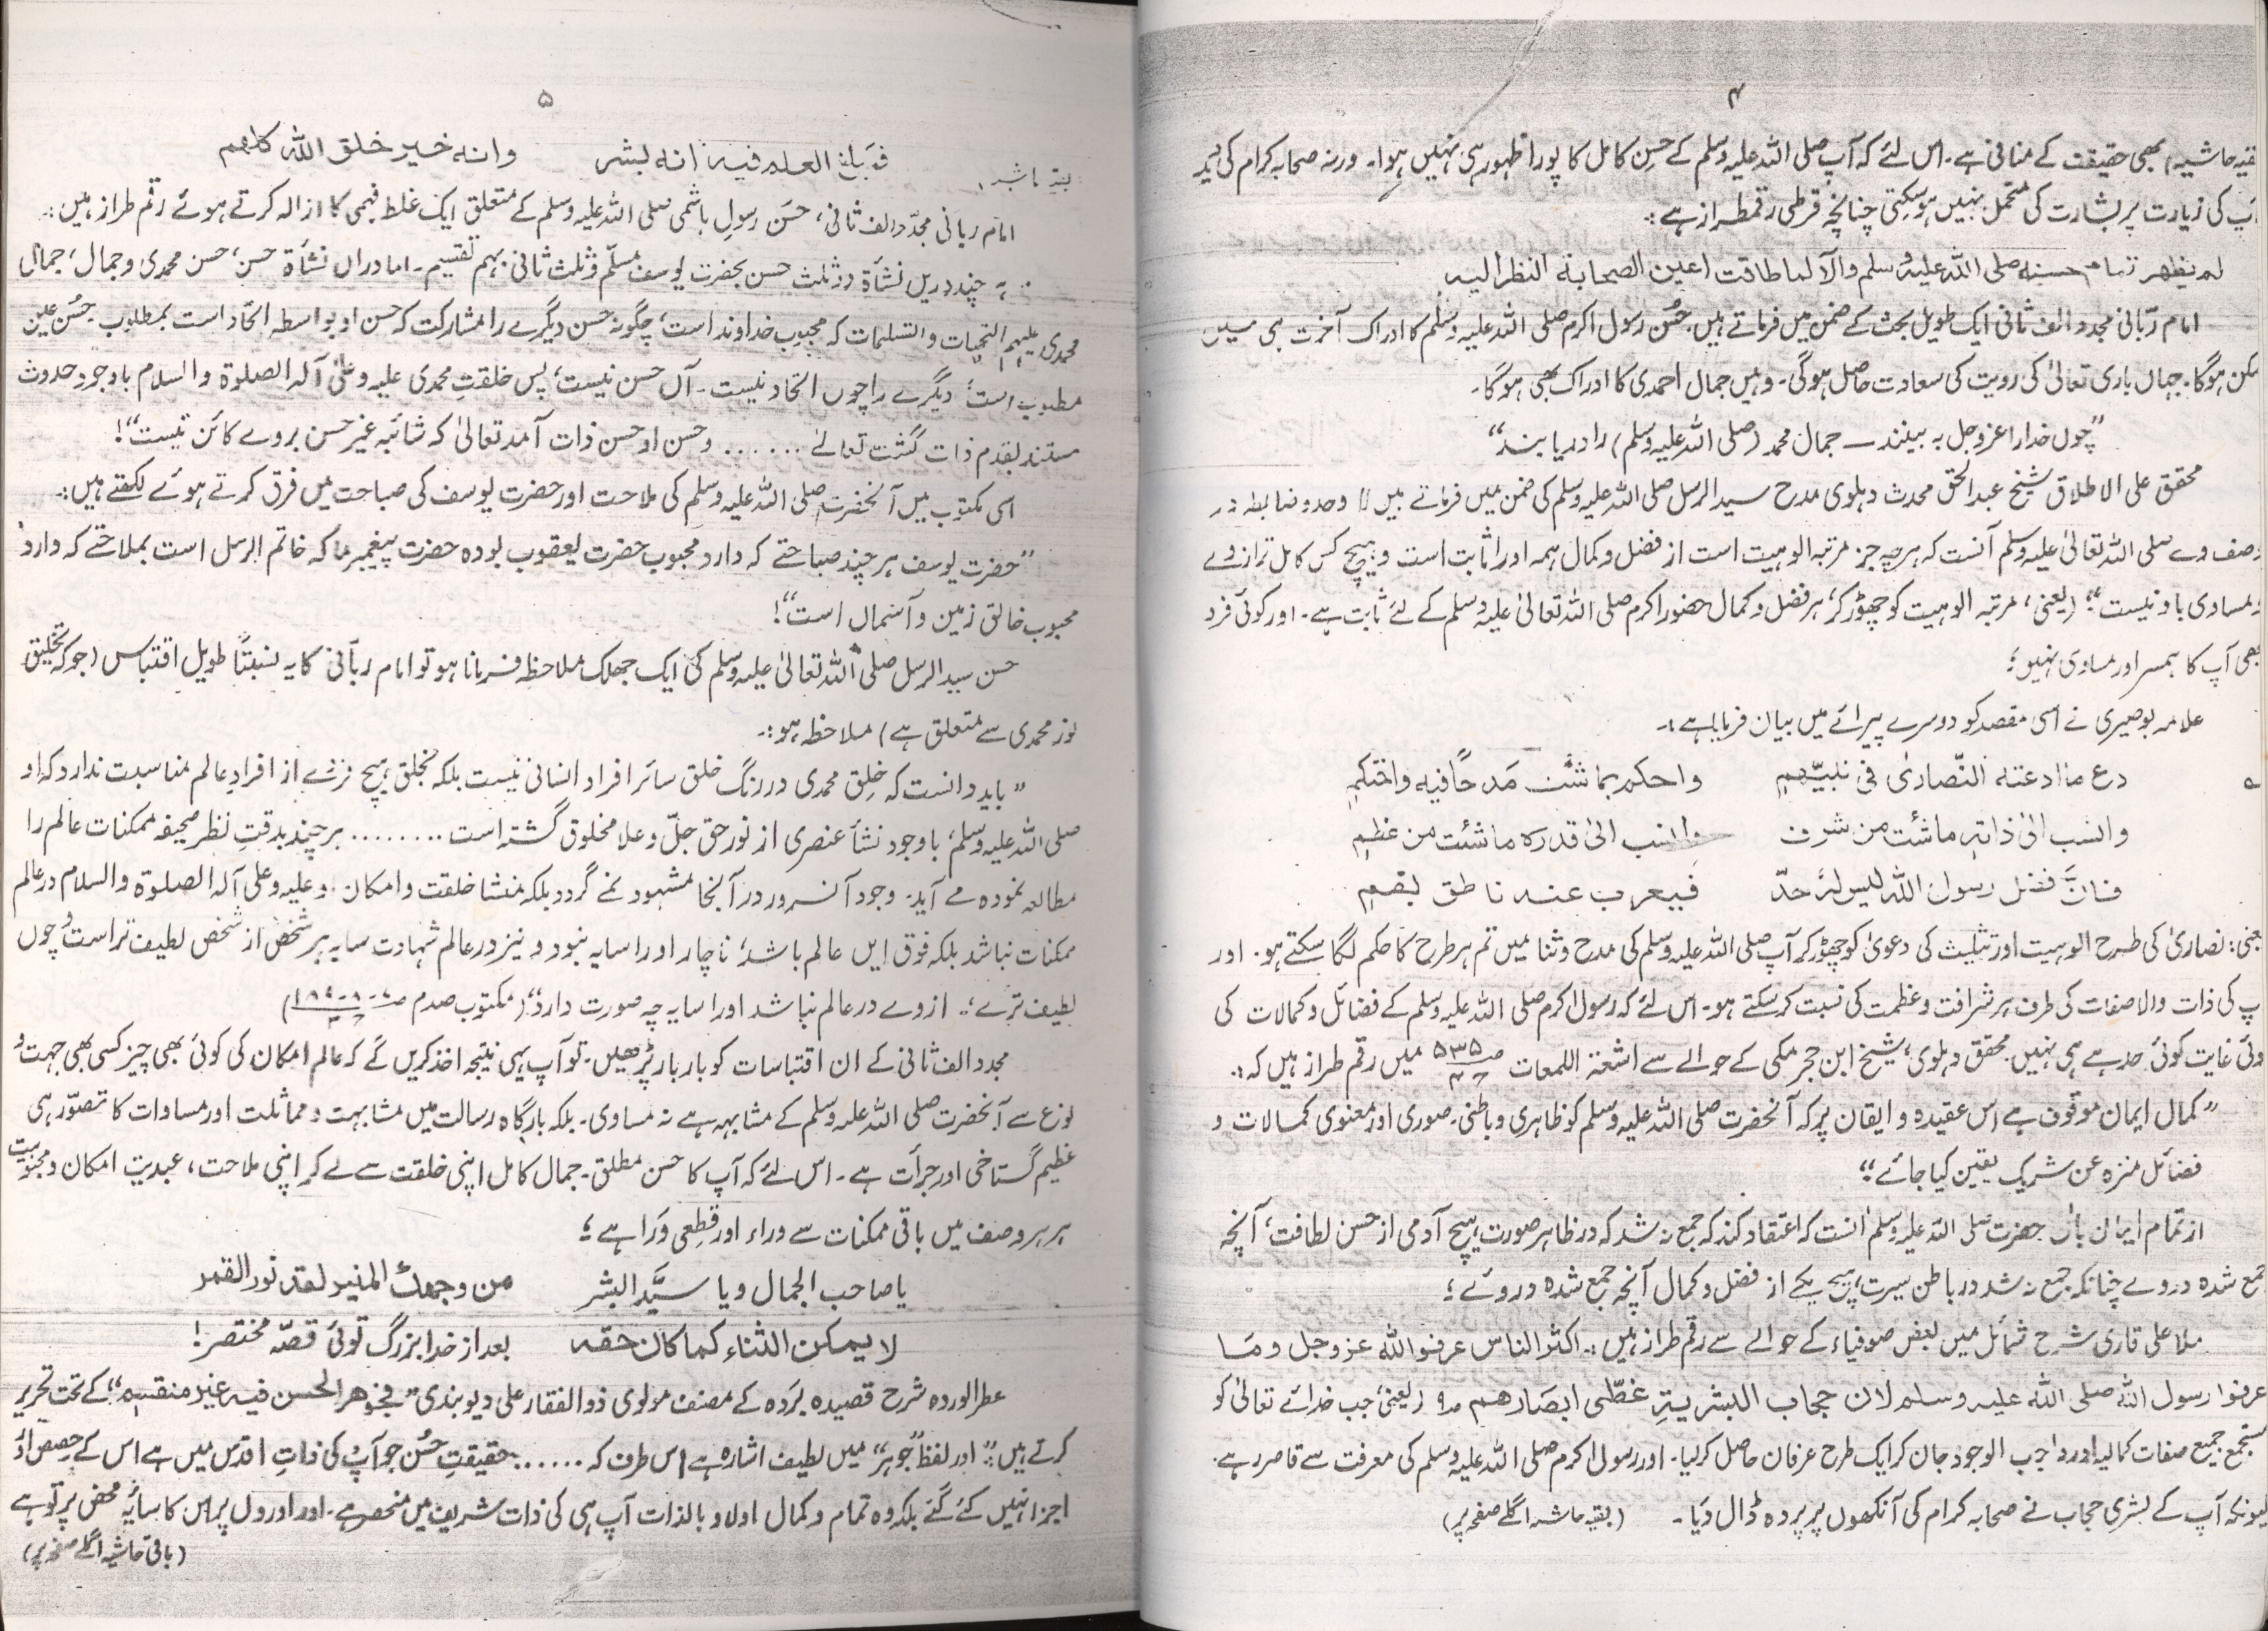 ۴
بقیہ حاشیہ) بھی حقیقت کے منافی ہے۔ اس لئے کہ آپ صلی اللہ علیہ وسلم کے حسن کامل کا پورا ظہور ہی نہیں ہوا۔ ورنہ صحابہ کرام کی دید
آپ کی زیارت پر بشارت کی متحمل نہیں ہوسکتی چنانچہ قرطبی رقمطراز ہے :۔
لم یظھر تمام حسنہ صلی اللہ علیہ وسلم والا لما طاقت اعین الصحابة النظر الیہ
امام ربّانی مجدد الف ثانی ایک طویل بحث کے ضمن میں فرماتے ہیں۔ حُسن رسول اکرم صلی اللہ علیہ وسلم کا ادراک آخرت ہی میں
ممکن ہوگا۔ جہاں باری تعالیٰ کی رویت کی سعادت حاصل ہوگی۔ وہیں جمال احمدی کا ادراک بھی ہوگا۔
”چوں خدا را عزوجل بہ بینند — جمال محمد (صلی اللہ علیہ وسلم) را دریابند“
محقق علی الاطلاق شیخ عبدالحق محدث دہلوی مدح سید الرسل صلی اللہ علیہ وسلم کی ضمن میں فرماتے ہیں ” وحد و ضابطہ در
وصف وے صلی اللہ تعالیٰ علیہ وسلم آنست کہ ہرچہ جز مرتبہ الوہیت است از فضل و کمال ہمہ اورا ثابت است و ہیچ کس کامل تر از وے
و مساوی باو نیست“؛ (یعنی، مرتبہ الوہیت کو چھوڑ کر، ہر فضل و کمال حضور اکرم صلی اللہ تعالیٰ علیہ وسلم کے لئے ثابت ہے۔ اور کوئی فرد
بھی آپ کا ہمسر اور مساوی نہیں؛
علامہ بوصیری نے اسی مقصد کو دوسرے پیرائے میں بیان فرمایا ہے :۔
دع ما ادعته النّصاریٰ فی نبیّھم واحکم بما شئت مَدحًا فیه واحتکم
وانسب الیٰ ذاتہٖ ما شئت من شرف وانسب الیٰ قدرہ ما شئت من عظم
فانَّ فضل رسول اللہ لیس لہٗ حدّ فیعرب عنہ ناطق بفم
یعنی: نصاریٰ کی طرح الوہیت اور تثلیث کی دعویٰ کو چھوڑ کر آپ صلی اللہ علیہ وسلم کی مدح و ثنا میں تم ہر طرح کا حکم لگا سکتے ہو۔ اور
آپ کی ذات والا صفات کی طرف ہر شرافت و عظمت کی نسبت کر سکتے ہو۔ اس لئے کہ رسول اکرم صلی اللہ علیہ وسلم کے فضائل و کمالات کی
کوئی غایت کوئی حد ہے ہی نہیں۔ محقق دہلوی، شیخ ابن حجر مکی کے حوالے سے اشعة اللمعات ص ۵۳۵ میں رقم طراز ہیں کہ :۔
” کمال ایمان موقوف ہے اس عقیدہ و ایقان پر کہ آنحضرت صلی اللہ علیہ وسلم کو ظاہری و باطنی۔ صوری اور معنوی کمالات و
فضائل منزہ عن شریک یقین کیا جائے“؛
از تمام ایمان بآں حضرت صلی اللہ علیہ وسلم آنست کہ اعتقاد کند کہ جمع نہ شد کہ در ظاہر صورت ہیچ آدمی از حسن لطافت، آنچہ
جمع شدہ در وے چنانکہ جمع نہ شد در باطن سیرت ہیچ یکے از فضل و کمال آنچہ جمع شدہ در وئے ؛
ملا علی قاری شرح شمائل میں بعض صوفیاء کے حوالے سے رقم طراز ہیں :۔ اکثر الناس عرفوا اللہ عزوجل ومَا
عرفوا رسول اللہ صلی اللہ علیہ وسلم لان حجاب البشریةِ غطّی ابصَارھم (یعنی، جب خدائے تعالیٰ کو
مستجمع جمیع صفات کمالیہ اور واجب الوجود جان کر ایک طرح عرفان حاصل کرلیا۔ اور رسول اکرم صلی اللہ علیہ وسلم کی معرفت سے قاصر رہے۔
کیونکہ آپ کے بشری حجاب نے صحابہ کرام کی آنکھوں پر پردہ ڈال دیا۔ (بقیہ حاشیہ اگلے صفحہ پر)
۵
بقیہ حاشیہ) فمبلغ العلم فیہ انہ بشر وانہ خیر خلق اللہ کلھم
امام ربانی مجدّد الف ثانی، حسن رسول ہاشمی صلی اللہ علیہ وسلم کے متعلق ایک غلط فہمی کا ازالہ کرتے ہوئے رقم طراز ہیں :۔
ہر چند دریں نشأة دو ثلث حسن بحضرت یوسف مسلّم و ثلث ثانی بہم تقسیم۔ اما دراں نشأة حسن، حسن محمدی و جمال، جمال
محمدی علیہم التحیات والتسلیمات کہ محبوب خداوند است، چگونہ حسن دیگرے را مشارکت کہ حسن او بواسطہ اتحاد است بمطلوب۔ حسن عین
مطلوب است؛ دیگرے را چوں اتحاد نیست۔ آں حسن نیست؛ پس خلقت محمدی علیہ وعلیٰ آلہ الصلوۃ والسلام باوجود حدوث
مستند بقدم ذات گشت تعالے ...... وحسن او حسن ذات آمد تعالیٰ کہ شائبہ غیر حسن بروے کائن نیست“!
اسی مکتوب میں آنحضرت صلی اللہ علیہ وسلم کی ملاحت اور حضرت یوسف کی صباحت میں فرق کرتے ہوئے لکھتے ہیں :۔
”حضرت یوسف ہر چند صباحتے کہ دارد محبوب حضرت یعقوب بودہ حضرت پیغمبر ما کہ خاتم الرسل است بملاحتے کہ دارد
محبوب خالق زمین و آسماں است“!
حسن سید الرسل صلی اللہ تعالیٰ علیہ وسلم کی ایک جھلک ملاحظہ فرمانا ہو تو امام ربّانی کا یہ نسبتاً طویل اقتباس (جو کہ تخلیق
نور محمدی سے متعلق ہے) ملاحظہ ہو :۔
” باید دانست کہ خلق محمدی در رنگ خلق سائر افراد انسانی نیست بلکہ بخلق ہیچ فردے از افراد عالم مناسبت ندارد کہ او
صلی اللہ علیہ وسلم، باوجود نشأ عنصری از نور حق جلّ و علا مخلوق گشتہ است ........ ہر چند بدقت نظر صحیفہ ممکنات عالم را
مطالعہ نمودہ مے آید۔ وجود آنسرور در آنجا مشہود نمے گردد بلکہ منشا خلقت و امکان۔ و علیہ وعلی آلہ الصلوۃ والسلام در عالم
ممکنات نباشد بلکہ فوق ایں عالم باشد؛ ناچار اورا سایہ نبود و نیز در عالم شہادت سایہ ہر شخص از شخص لطیف تر است و چوں
لطیف ترے؛ از وے در عالم نباشد اورا سایہ چہ صورت دارد“ (مکتوب صدم
مجدد الف ثانی کے ان اقتباسات کو بار بار پڑھیں۔ تو آپ یہی نتیجہ اخذ کریں گے کہ عالم امکان کی کوئی بھی چیز کسی بھی جہت و
نوع سے آنحضرت صلی اللہ علیہ وسلم کے مشابہہ ہے نہ مساوی۔ بلکہ بارگاہ رسالت میں مشابہت و مماثلت اور مساوات کا تصوّر ہی
عظیم گستاخی اور جرأت ہے۔ اس لئے کہ آپ کا حسن مطلق۔ جمال کامل اپنی خلقت سے لے کر اپنی ملاحت، عبدیت امکان و محبوبیت
ہر ہر وصف میں باقی ممکنات سے وراء اور قطعی وَرا ہے ؛
یا صاحب الجمال ویا سیّد البشر من وجھک المنیر لقد نور القمر
لا یمکن الثناء کما کان حقہ بعد از خدا بزرگ توئی قصّہ مختصر !
عطر الوردہ شرح قصیدہ بَردہ کے مصنف مولوی ذوالفقار علی دیوبندی ”فجوھر الحسن فیہ غیر منقسم“؛ کے تحت تحریر
کرتے ہیں : اور لفظ ”جوہر“ میں لطیف اشارہ ہے اس طرف کہ ...... حقیقتِ حُسن جو آپؐ کی ذاتِ اقدس میں ہے اس کے حصص اور
اجزا نہیں کئے گئے بلکہ وہ تمام و کمال اولا و بالذات آپ ہی کی ذات شریف میں منحصر ہے۔ اور اوروں پر اس کا سایہ محض پرتو ہے
(باقی حاشیہ اگلے صفحہ پر)